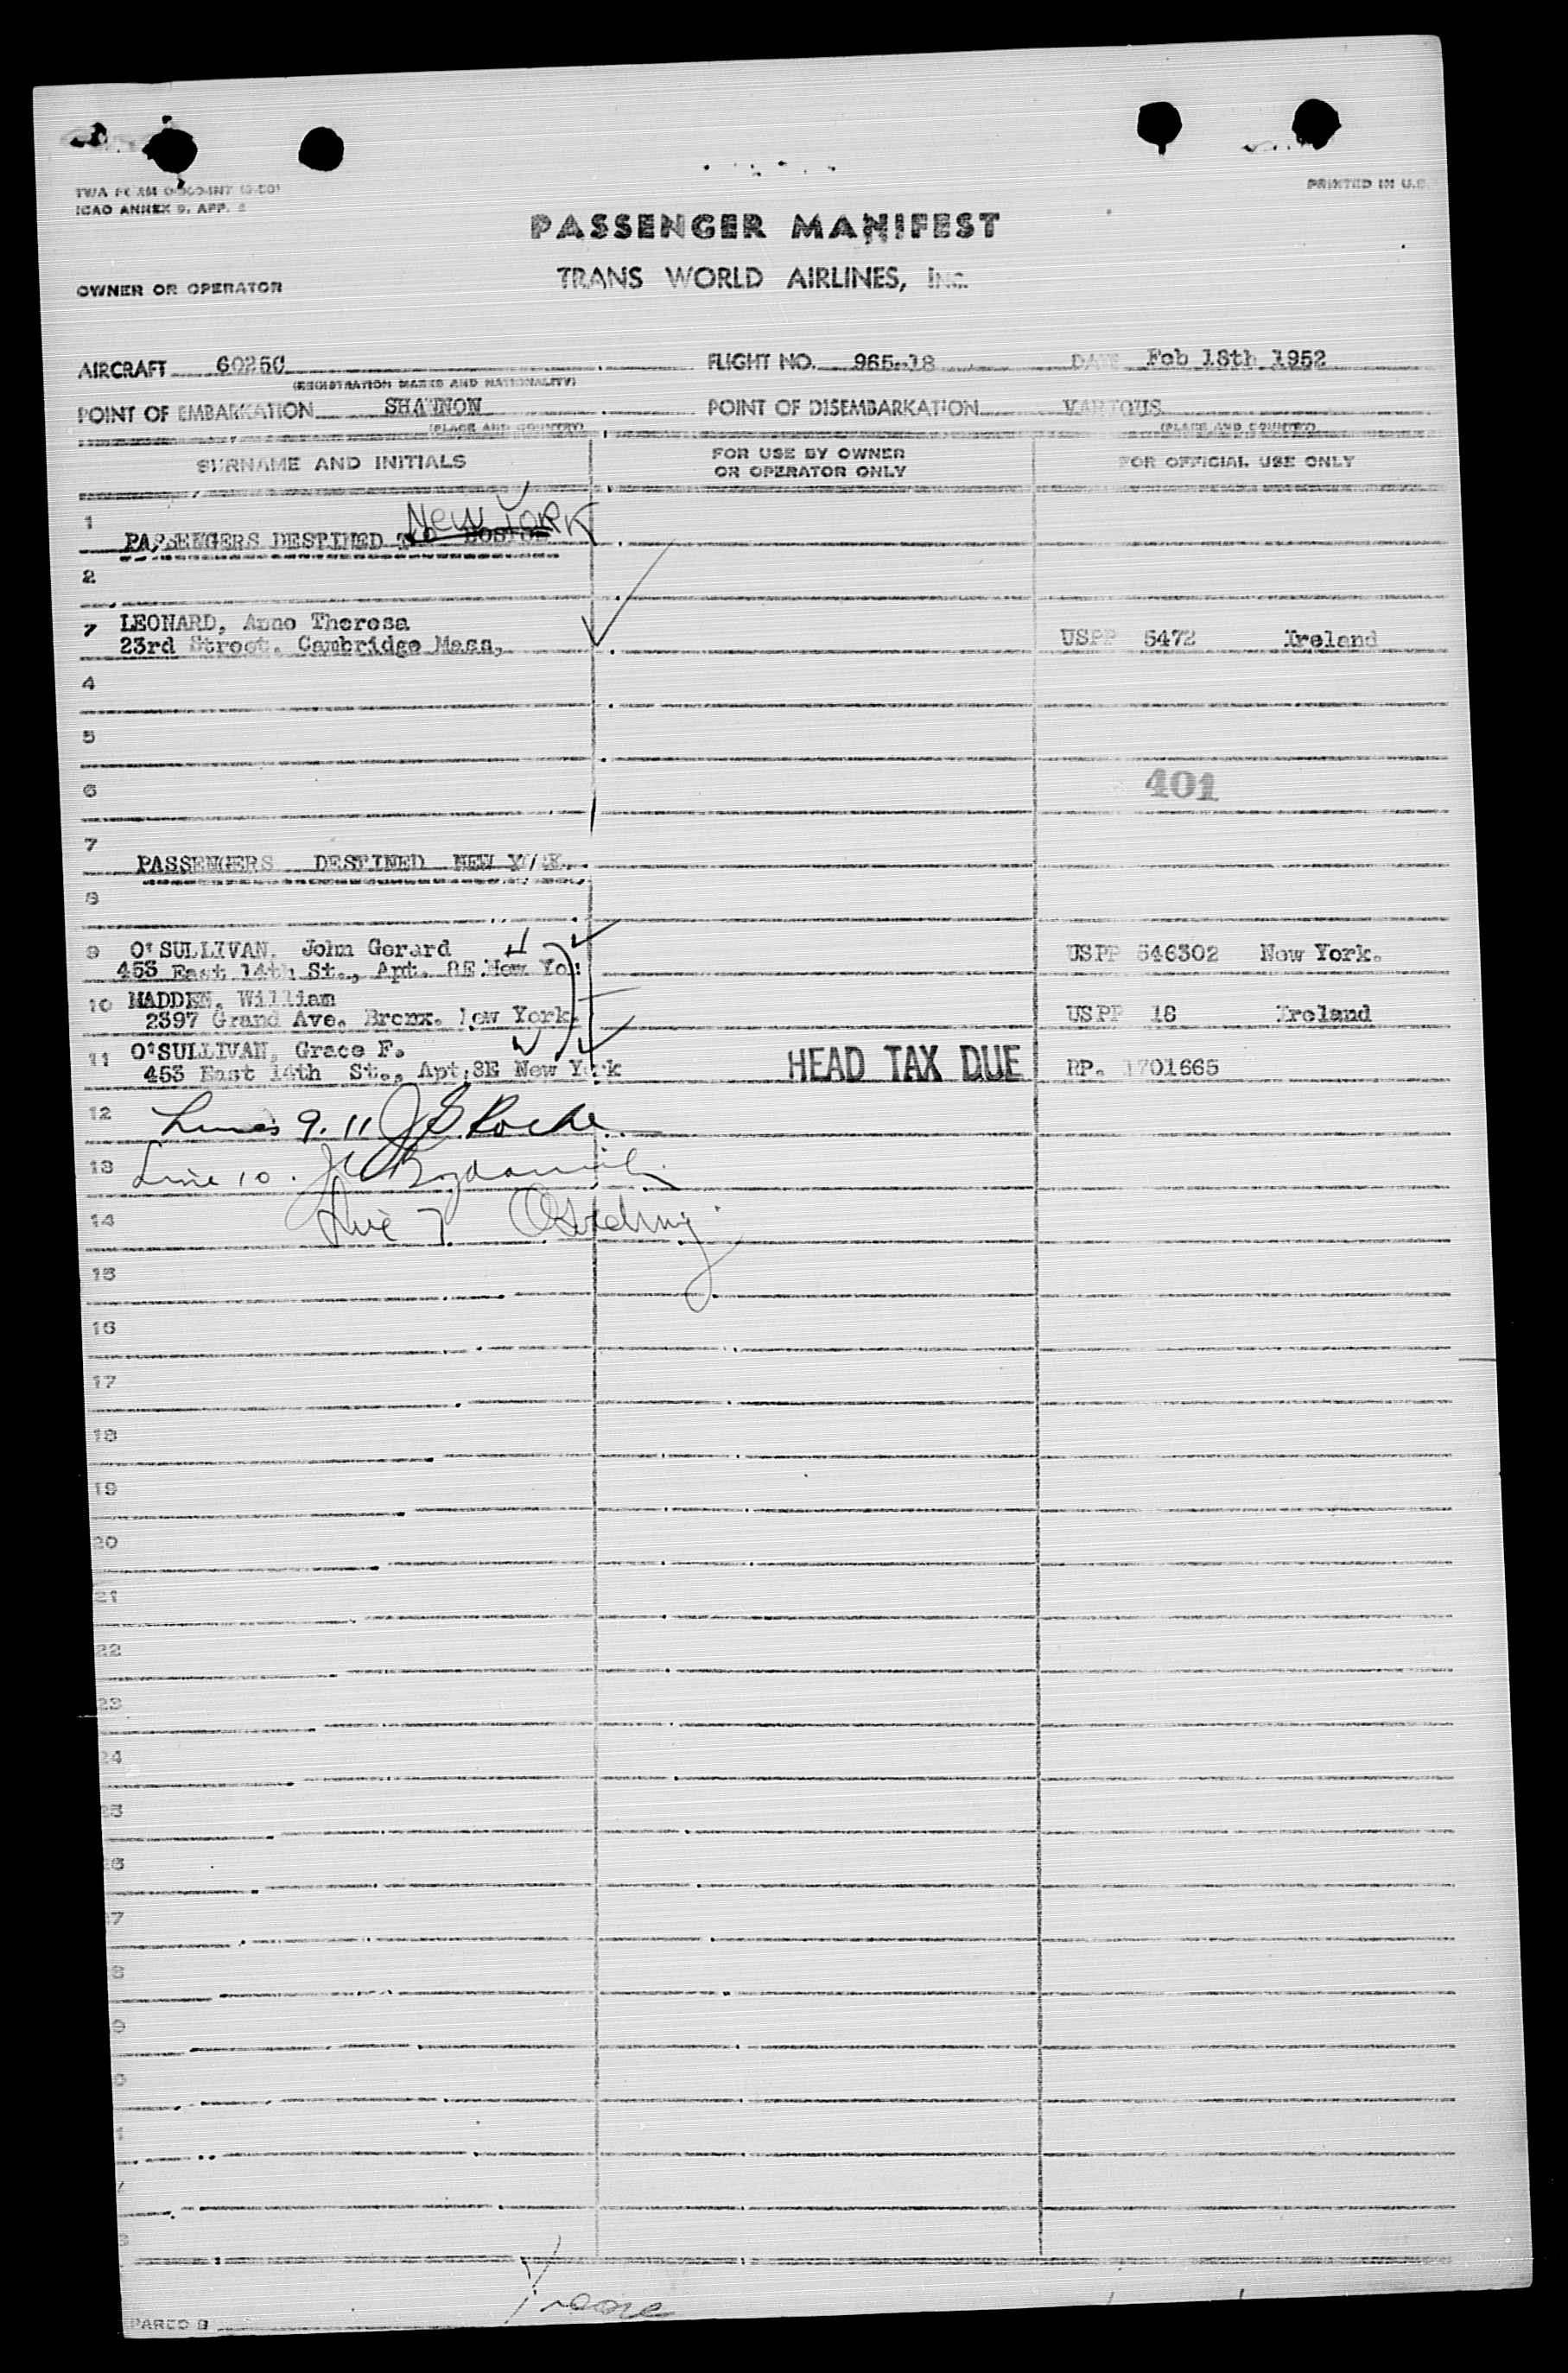 ICAO ANNEX 9, APP.
PRINTED IN U.S.
PASSENGER MANIFEST
OWNER OR OPERATOR
TRANS WORLD AIRLINES, INC.
AIRCRAFT 6025C FLIGHT NO. 965-18 DATE Feb 18th 1952
(REGISTRATION MARKS AND NATIONALITY)
POINT OF EMBARKATION SHANNON POINT OF DISEMBARKATION VARIOUS
(PLACE AND COUNTRY) (PLACE AND COUNTRY)
SURNAME AND INITIALS FOR USE BY OWNER OR OPERATOR ONLY FOR OFFICIAL USE ONLY
New York
1 PASSENGERS DESTINED TO BOSTON
2
7 LEONARD, Anne Theresa
23rd Street. Cambridge Mass, USPP 5472 Ireland
4
5
6 401
7 PASSENGERS DESTINED NEW YORK.
8
9 O'SULLIVAN, John Gerard USPP 546302 New York.
453 East 14th St., Apt. 8E New Yo
10 MADDEN, William
2397 Grand Ave. Bronx. New York. USPP 18 Ireland
11 O'SULLIVAN, Grace F.
453 East 14th St., Apt 8E New York HEAD TAX DUE RP. 1701665
12 Lines 9. 11 J G Roche
13 Line 10.
14 Line 7
15
16
17
18
19
20
21
22
23
24
25
26
7
8
9
0
1
PARED B